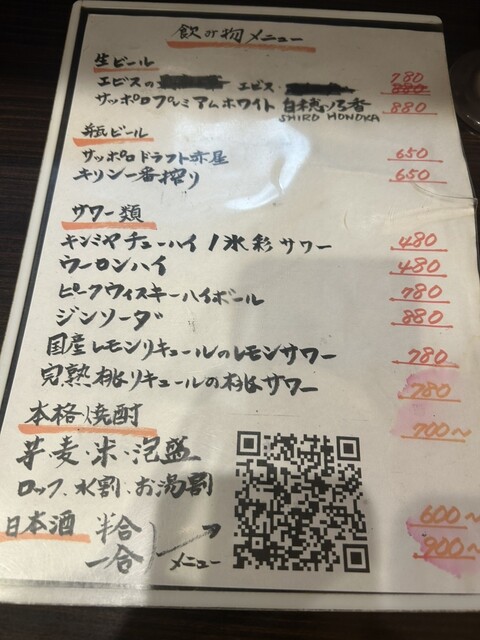 飲み物メニュー
生ビール
エビスの エビス・ 780
880
サッポロプレミアムホワイト 白穂乃香 880
SHIRO HONOKA
瓶ビール
サッポロドラフト赤星 650
キリン一番搾り 650
サワー類
キンミヤチューハイ/氷彩サワー 480
ウーロンハイ 480
ピークウィスキーハイボール 780
ジンソーダ 880
国産レモンリキュールのレモンサワー 780
完熟桃リキュールの桃サワー 780
本格焼酎 700〜
芋・麦・米・泡盛
ロック、水割、お湯割
日本酒 半合 600〜
一合 900〜
メニュー